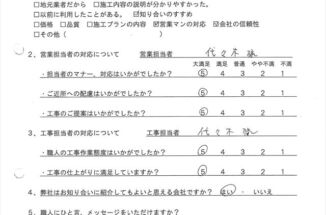 □地元業者だから □施工内容の説明が分かりやすかった。
□以前に利用したことがある。 ☑知り合いのすすめ
□価格 □品質 □施工プランの内容 ☑営業マンの対応 ☑会社の信頼性
□その他( )
2. 営業担当者の対応について 営業担当者 代々木
大満足 満足 普通 やや不満 不満
・担当者のマナー、対応はいかがでしたか? 5 4 3 2 1
・ご近所への配慮はいかがでしたか? 5 4 3 2 1
・工事のご提案はいかがでしたか? 5 4 3 2 1
3. 工事担当者の対応について 工事担当者 代々木
・職人の工事作業態度はいかがでしたか? 5 4 3 2 1
・工事の仕上がりに満足していますか? 5 4 3 2 1
4. 弊社はお知り合いに紹介してもよいと思える会社ですか? はい ・ いいえ
5. 職人にひと言、メッセージをいただけますか?